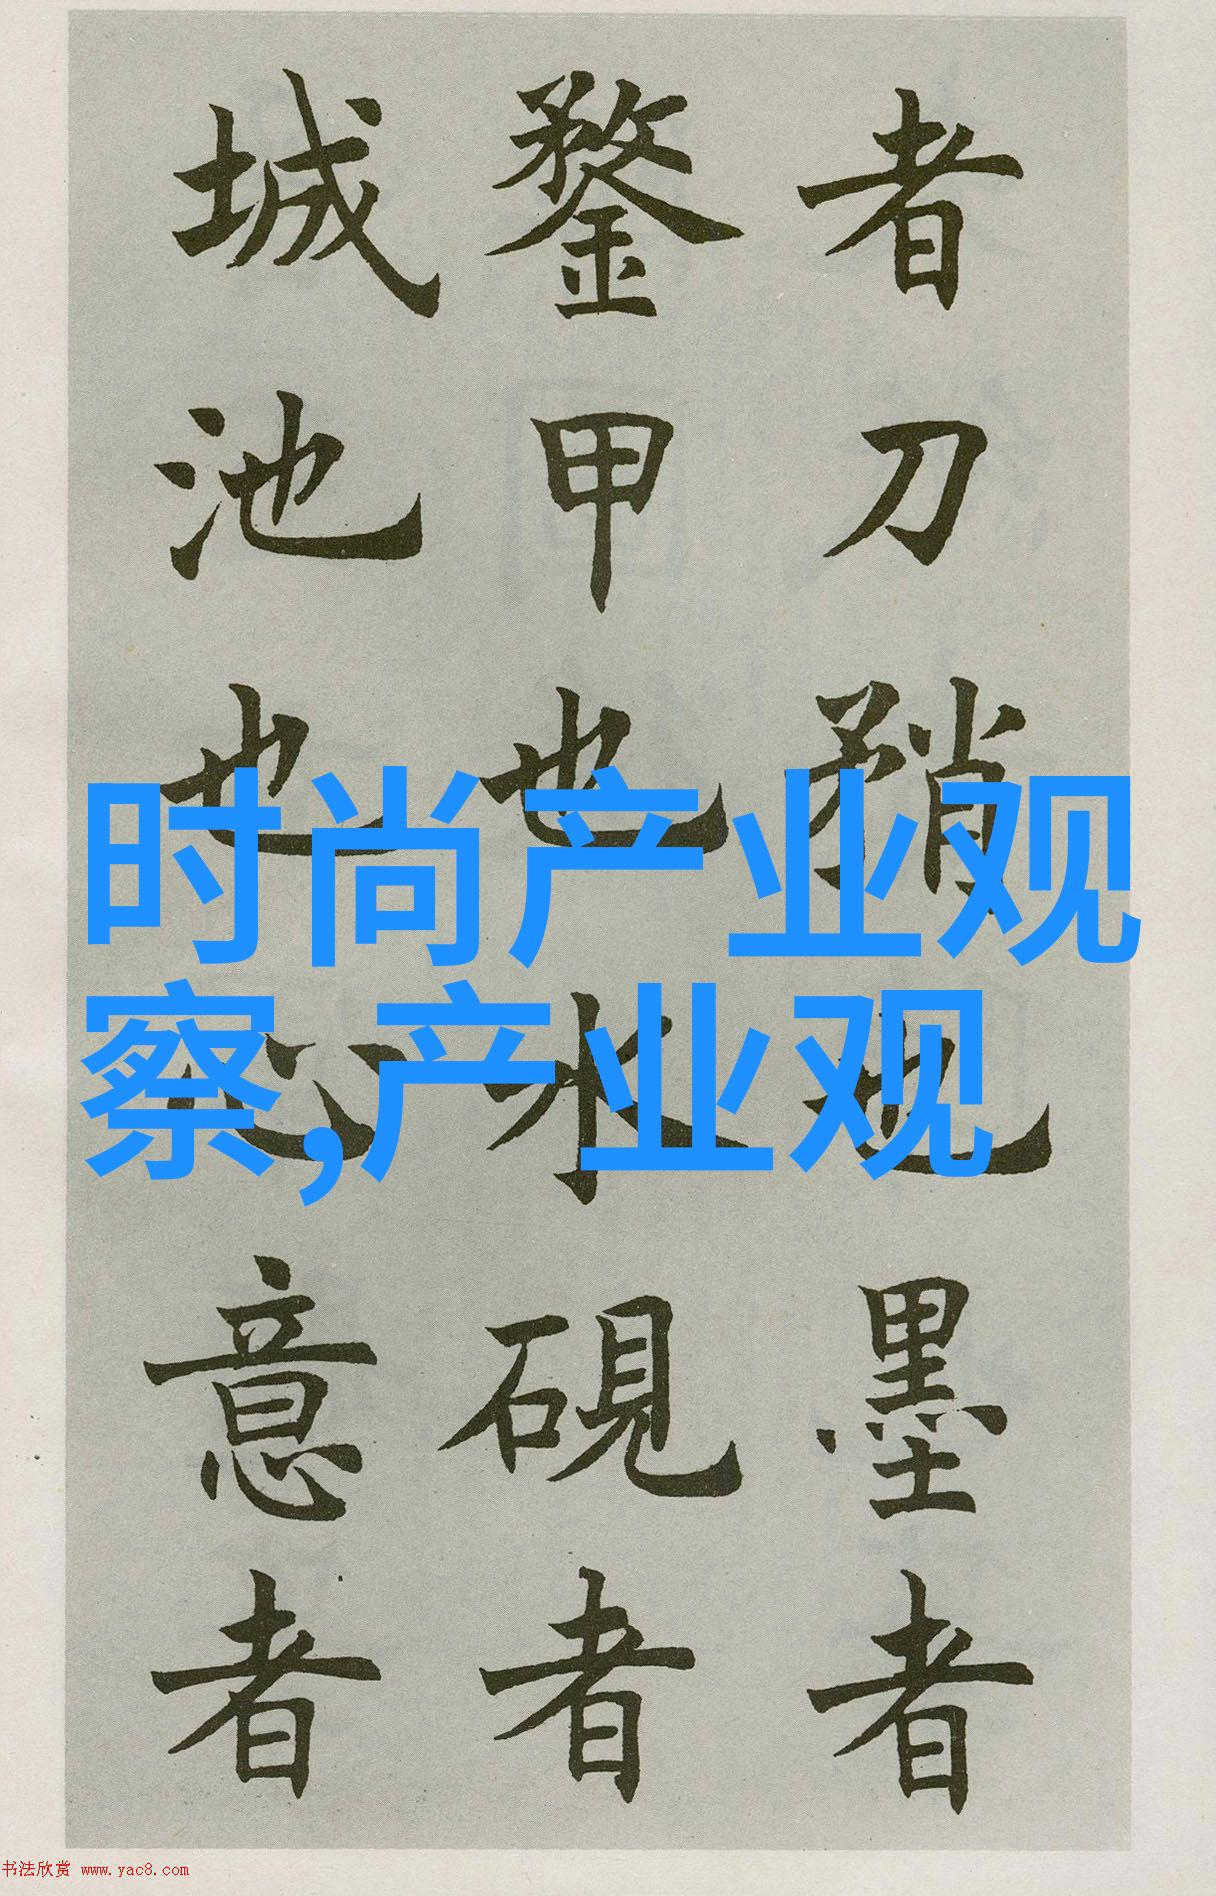 者刀矟也墨者
鍪甲也水硯者
城池也心意者
时尚产业观
察,产业观
书法欣赏 www.yac8.com